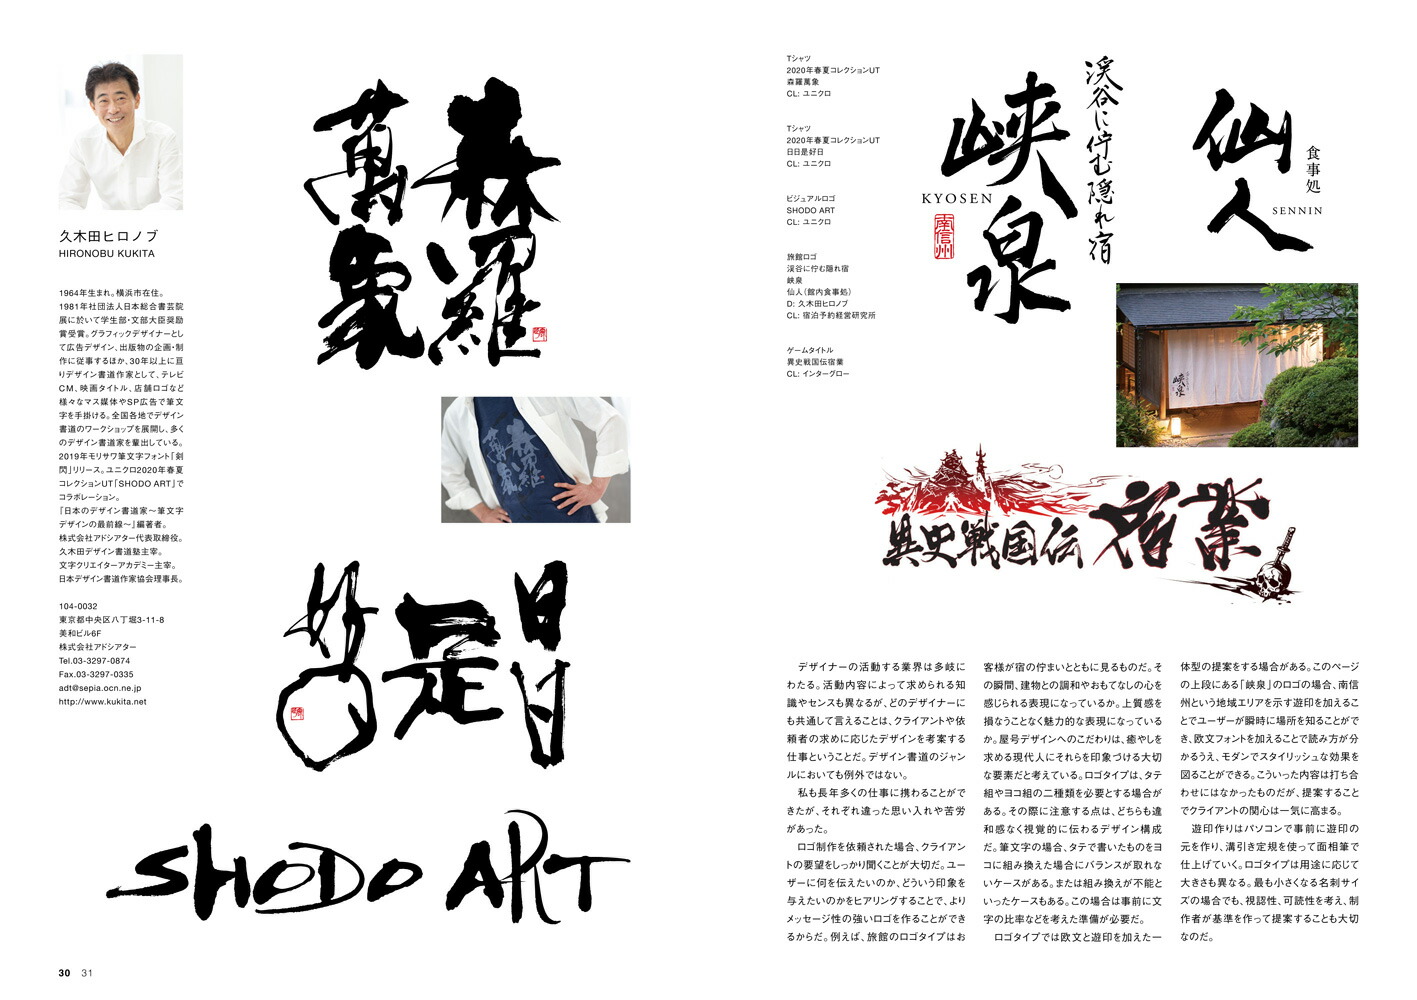 久木田ヒロノブ
HIRONOBU KUKITA
1964年生まれ。横浜市在住。
1981年社団法人日本総合書芸院
展に於いて学生部・文部大臣奨励
賞受賞。グラフィックデザイナーとし
て広告デザイン、出版物の企画・制
作に従事するほか、30年以上に亘
りデザイン書道作家として、テレビ
CM、映画タイトル、店舗ロゴなど
様々なマス媒体やSP広告で筆文
字を手掛ける。全国各地でデザイン
書道のワークショップを展開し、多く
のデザイン書道家を輩出している。
2019年モリサワ筆文字フォント「剣
閃」リリース。ユニクロ2020年春夏
コレクションUT「SHODO ART」で
コラボレーション。
「日本のデザイン書道家〜筆文字
デザインの最前線〜」編著者。
株式会社アドシアター代表取締役。
久木田デザイン書道塾主宰。
文字クリエイターアカデミー主宰。
日本デザイン書道作家協会理事長。
104-0032
東京都中央区八丁堀3-11-8
美和ビル6F
株式会社アドシアター
Tel.03-3297-0874
Fax.03-3297-0335
adt@sepia.ocn.ne.jp
http://www.kukita.net
森羅
萬象
森羅
萬象
日日
是
好日
SHODO ART
30 31
Tシャツ
2020年春夏コレクションUT
森羅萬象
CL: ユニクロ
Tシャツ
2020年春夏コレクションUT
日日是好日
CL: ユニクロ
ビジュアルロゴ
SHODO ART
CL: ユニクロ
旅館ロゴ
渓谷に佇む隠れ宿
峡泉
仙人（館内食事処）
D: 久木田ヒロノブ
CL: 宿泊予約経営研究所
ゲームタイトル
異史戦国伝宿業
CL: インターグロー
渓谷に佇む隠れ宿
峡泉
KYOSEN
南信州
食事処
仙人
SENNIN
峡泉
異史戦国伝 宿業
デザイナーの活動する業界は多岐に
わたる。活動内容によって求められる知
識やセンスも異なるが、どのデザイナーに
も共通して言えることは、クライアントや依
頼者の求めに応じたデザインを考案する
仕事ということだ。デザイン書道のジャン
ルにおいても例外ではない。
私も長年多くの仕事に携わることがで
きたが、それぞれ違った思い入れや苦労
があった。
ロゴ制作を依頼された場合、クライアン
トの要望をしっかり聞くことが大切だ。ユー
ザーに何を伝えたいのか、どういう印象を
与えたいのかをヒアリングすることで、より
メッセージ性の強いロゴを作ることができ
るからだ。例えば、旅館のロゴタイプはお
客様が宿の佇まいとともに見るものだ。そ
の瞬間、建物との調和やおもてなしの心を
感じられる表現になっているか。上質感を
損なうことなく魅力的な表現になっている
か。屋号デザインへのこだわりは、癒やしを
求める現代人にそれらを印象づける大切
な要素だと考えている。ロゴタイプは、タテ
組やヨコ組の二種類を必要とする場合が
ある。その際に注意する点は、どちらも違
和感なく視覚的に伝わるデザイン構成
だ。筆文字の場合、タテで書いたものをヨ
コに組み換えた場合にバランスが取れな
いケースがある。または組み換えが不能と
いったケースもある。この場合は事前に文
字の比率などを考えた準備が必要だ。
ロゴタイプでは欧文と遊印を加えた一
体型の提案をする場合がある。このページ
の上段にある「峡泉」のロゴの場合、南信
州という地域エリアを示す遊印を加えるこ
とでユーザーが瞬時に場所を知ることがで
き、欧文フォントを加えることで読み方が分
かるうえ、モダンでスタイリッシュな効果を
図ることができる。こういった内容は打ち合
わせにはなかったものだが、提案すること
でクライアントの関心は一気に高まる。
遊印作りはパソコンで事前に遊印の
元を作り、溝引き定規を使って面相筆で
仕上げていく。ロゴタイプは用途に応じて
大きさも異なる。最も小さくなる名刺サイ
ズの場合でも、視認性、可読性を考え、制
作者が基準を作って提案することも大切
なのだ。